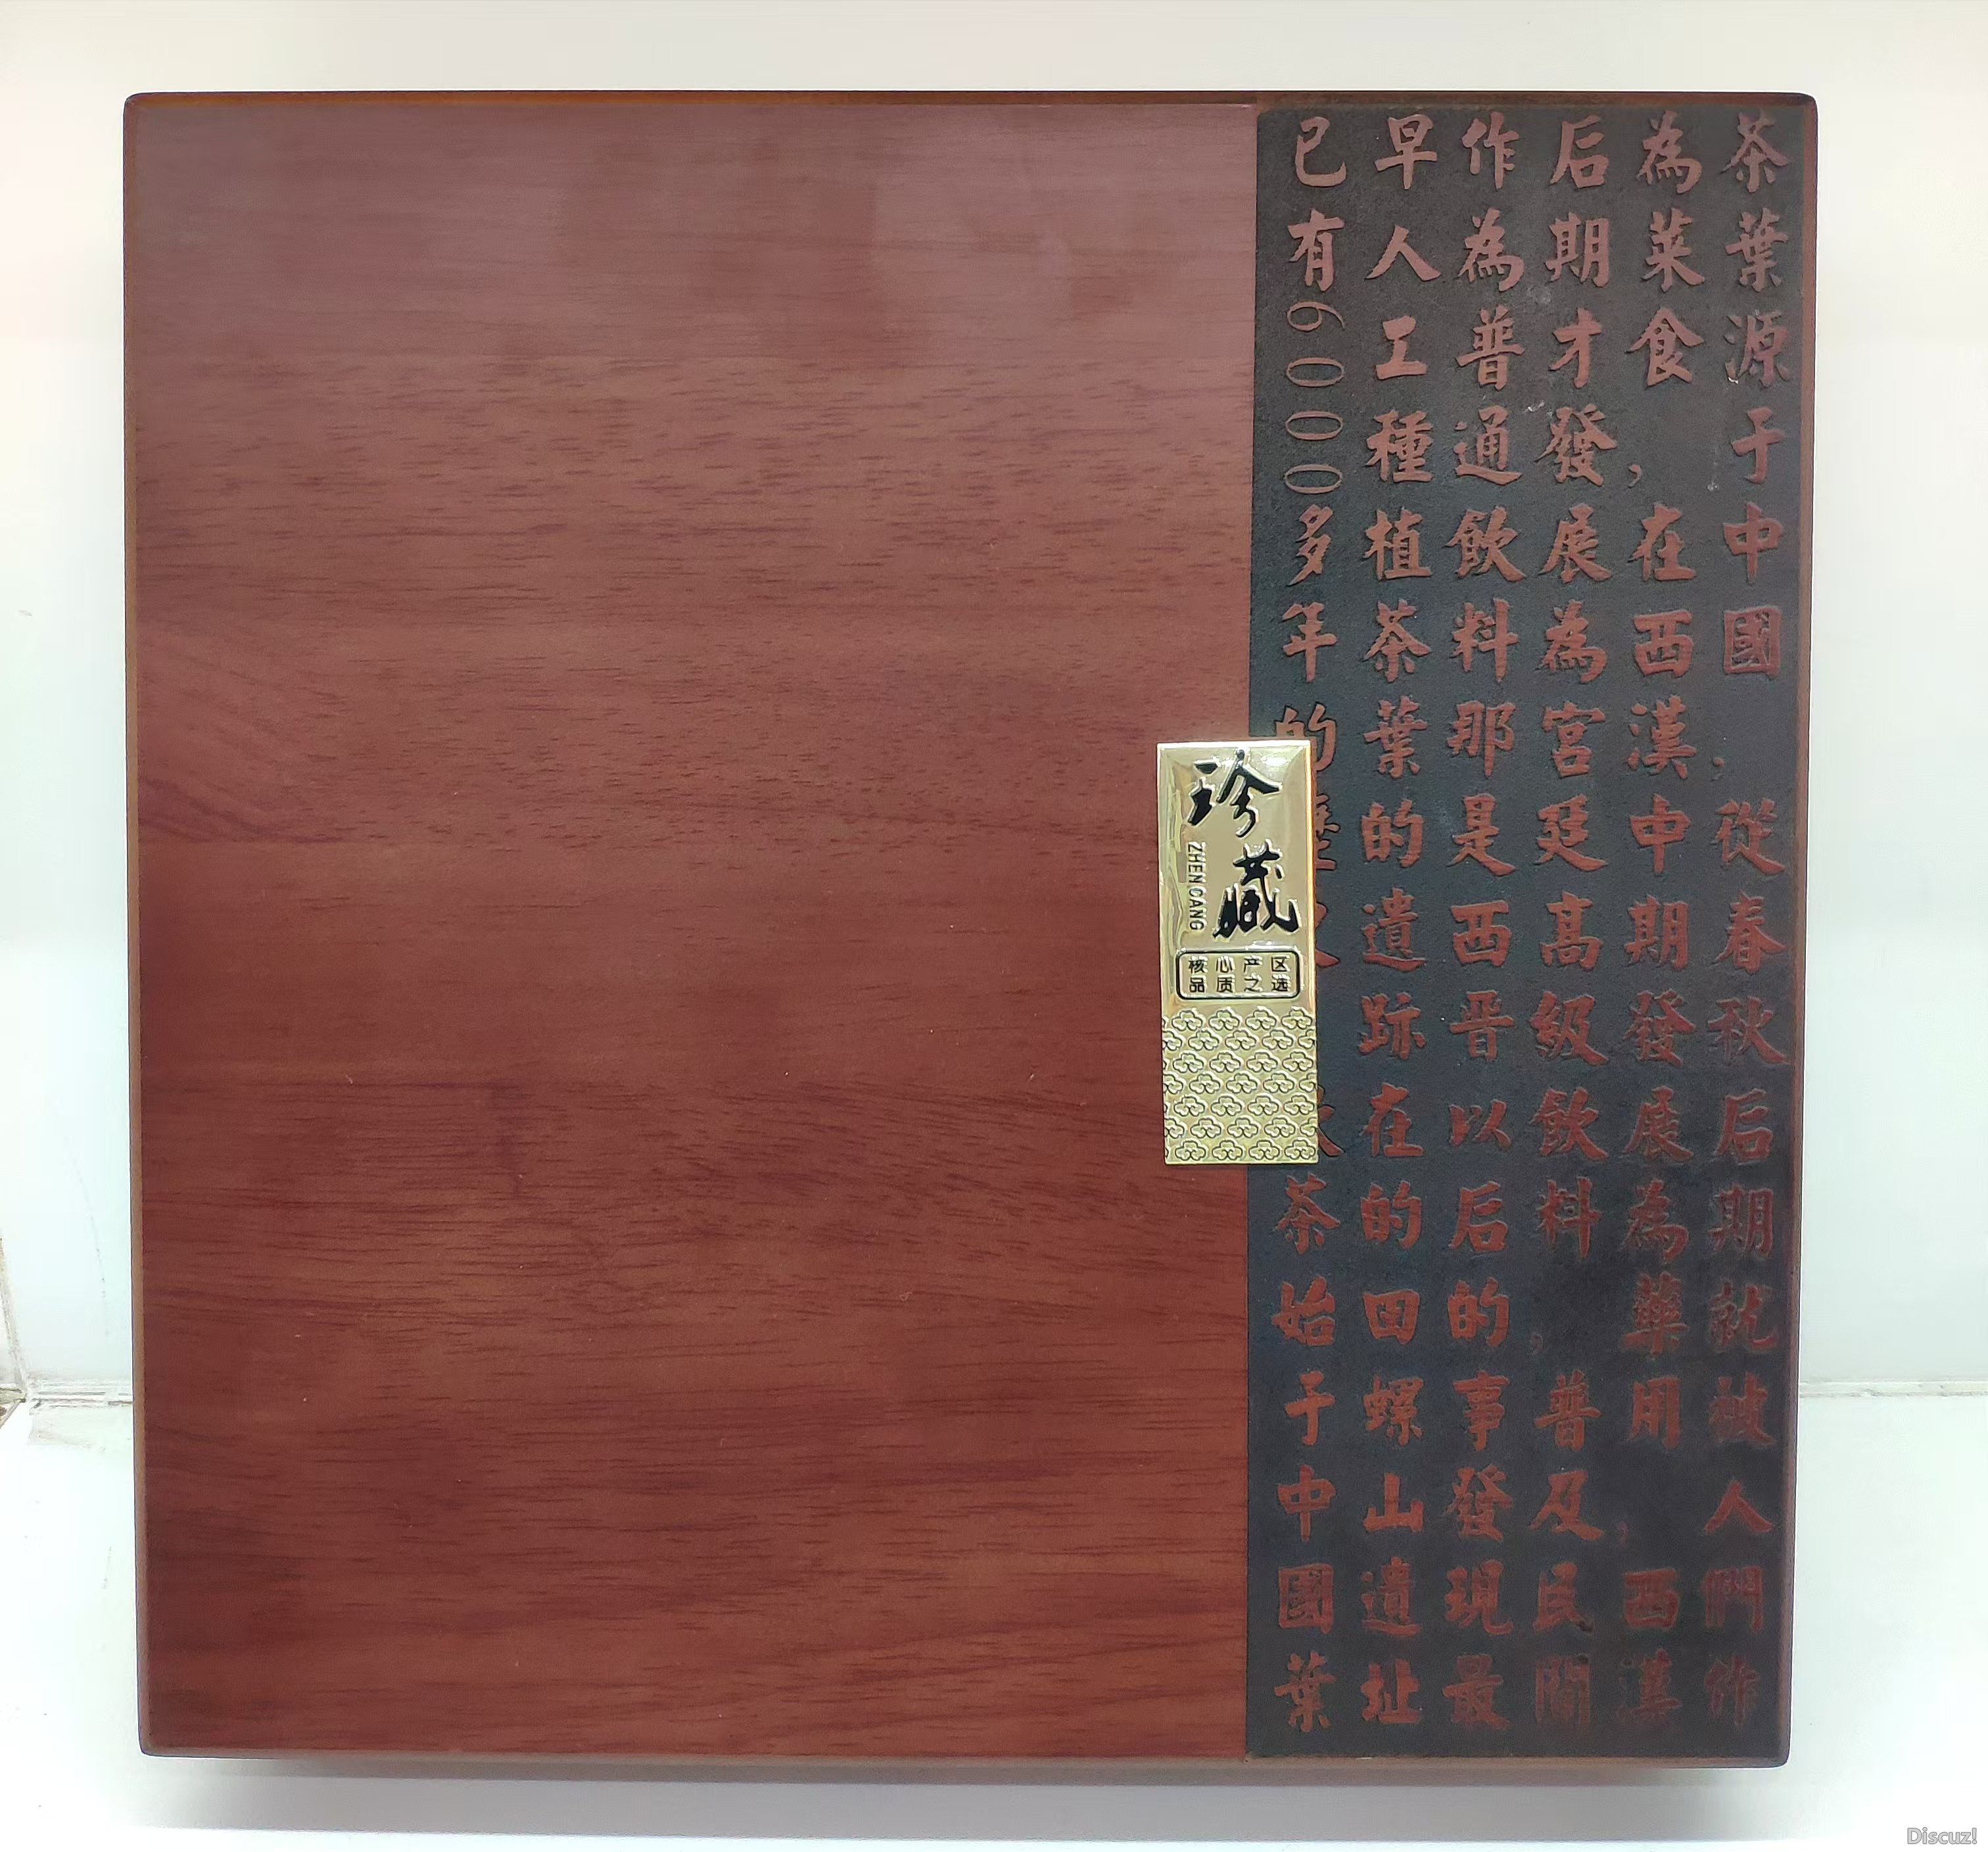 茶葉源于中國，從春秋后期就被人們作
為菜食，在西漢中期發展為藥用，西漢
后期才發展為宮廷高級飲料，普及民間
作為普通飲料那是西晋以后的事發現最
早人工種植茶葉的遺跡在的田螺山遺址
已有6000多年的
茶始于中國葉
珍藏
ZHEN CANG
核心产区
品质之选
Discuz!